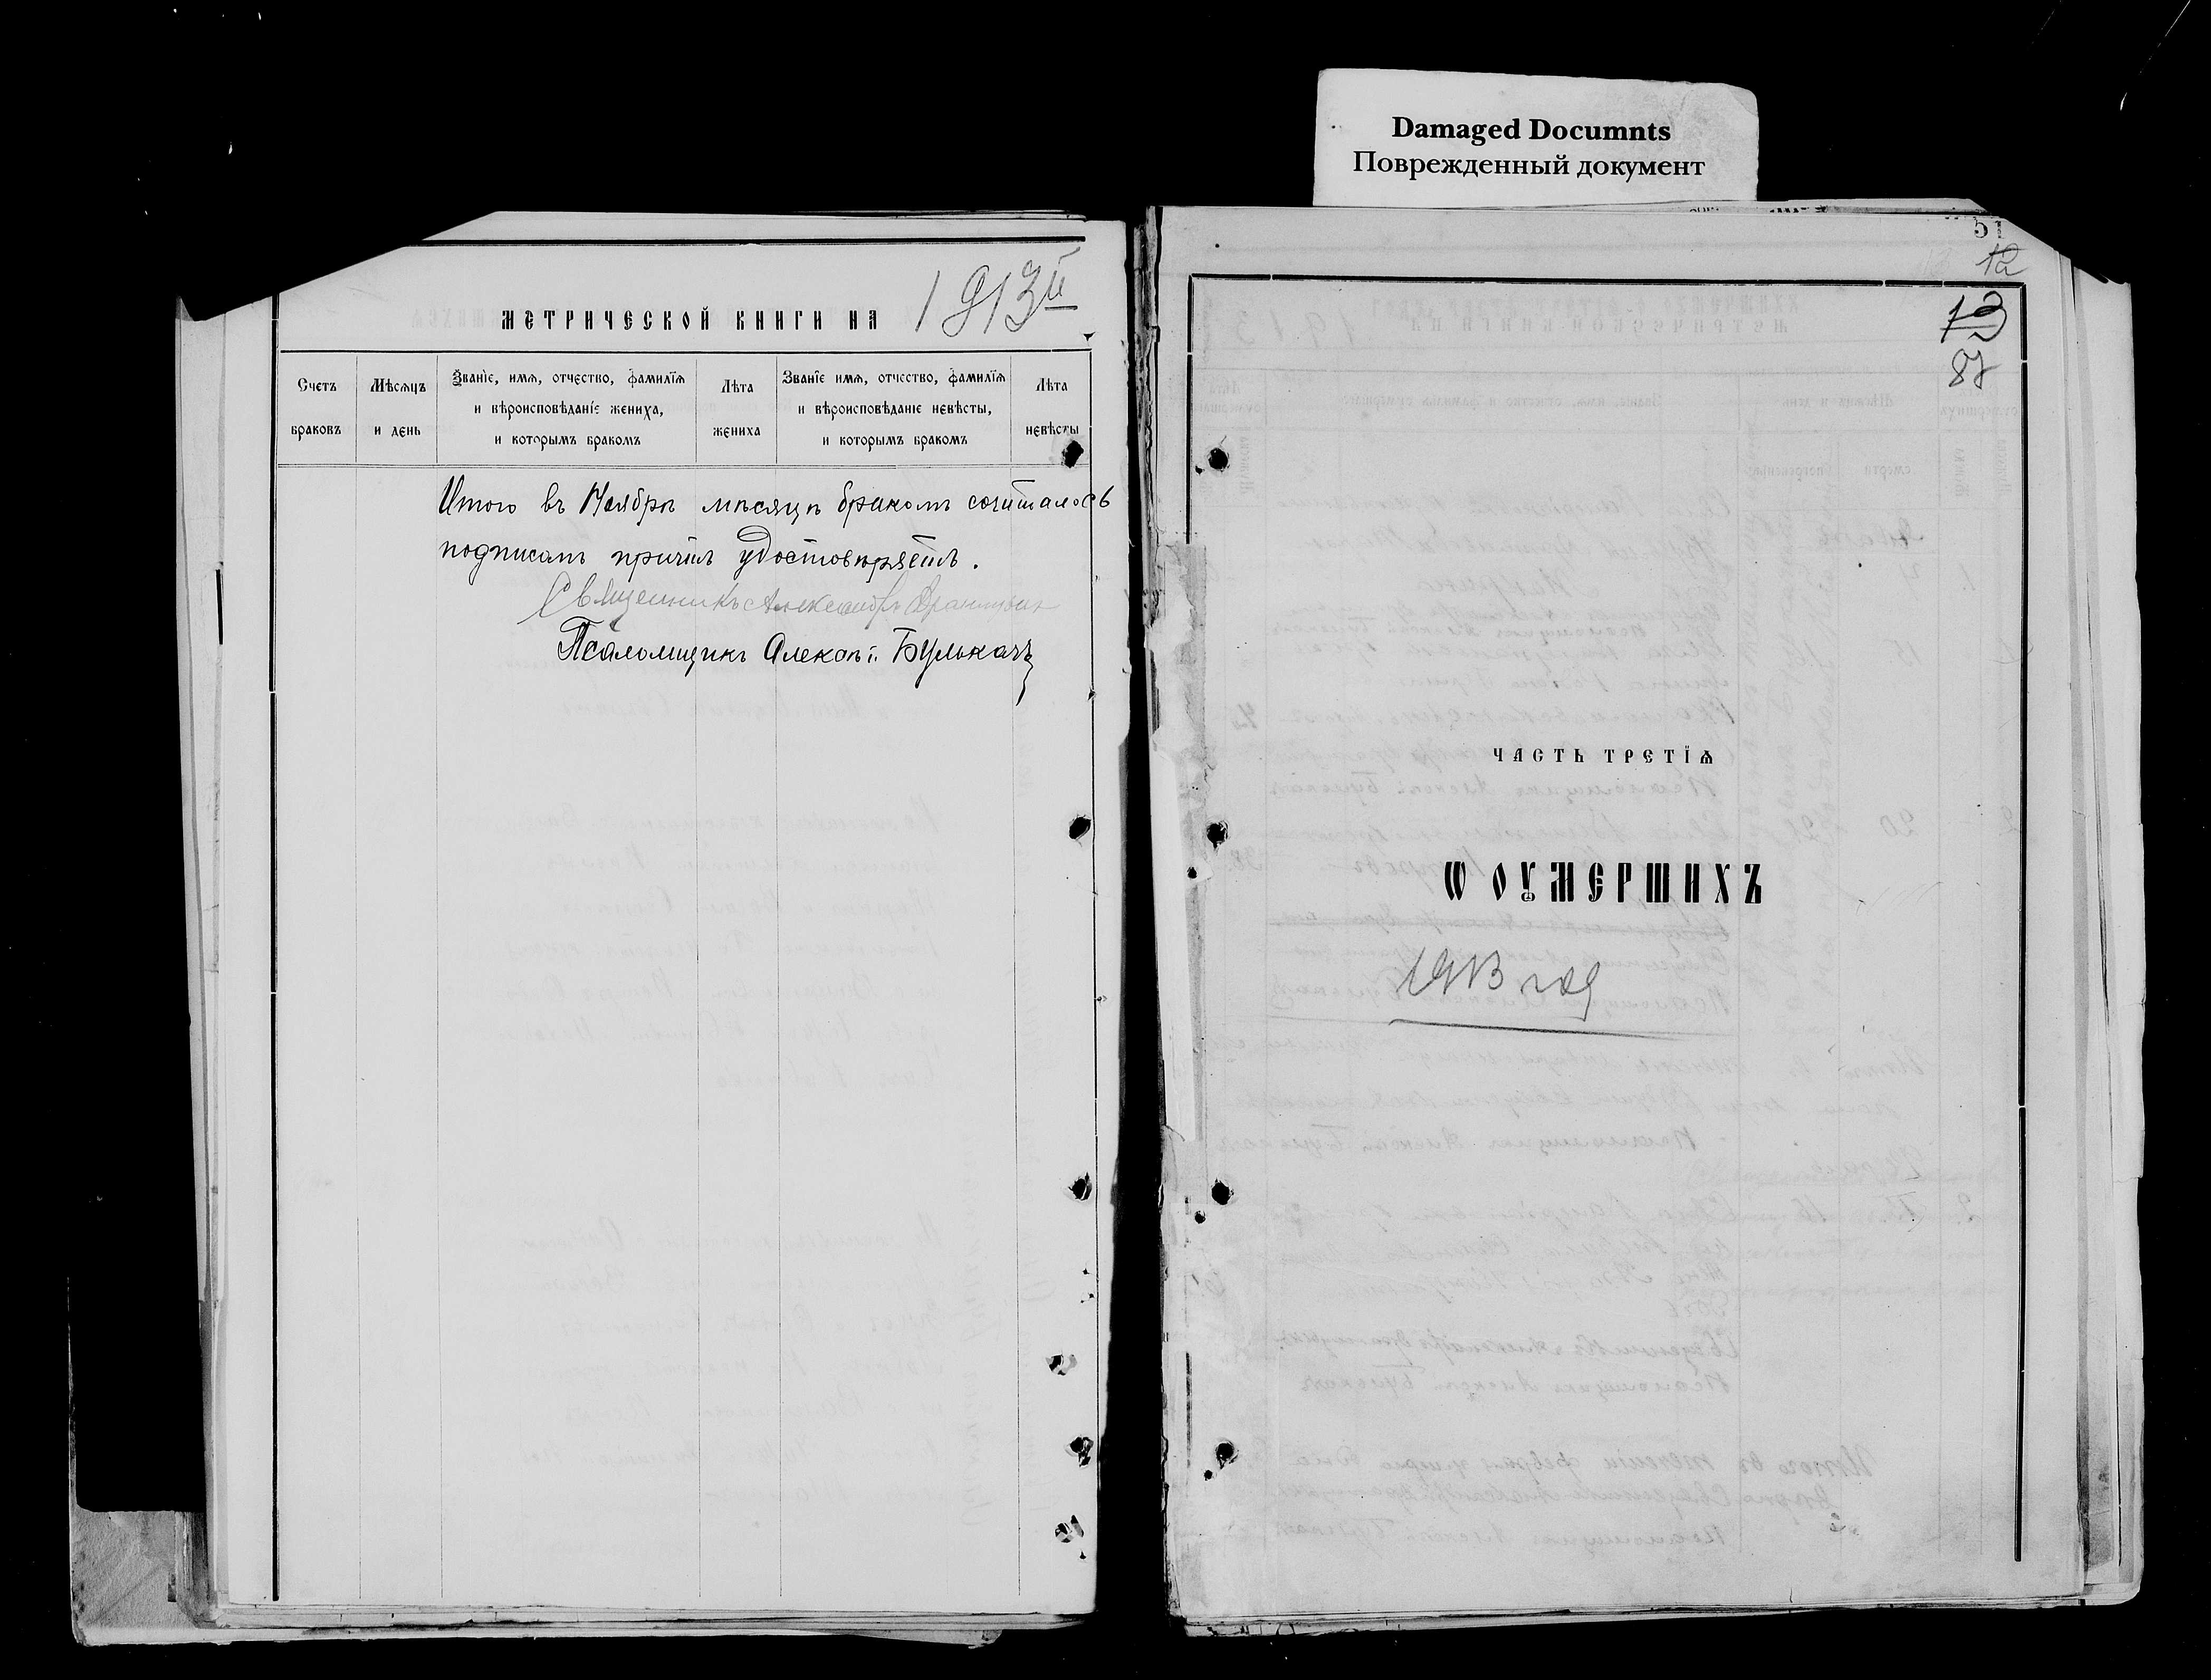 Damaged Documnts
Поврежденный документ
метрической книги на 1913й
Счетъ браковъ
Мѣсяцъ и день
Званїе, имя, отчество, фамилїя и вѣроисповѣданїе жениха, и которымъ бракомъ
Лѣта жениха
Званїе имя, отчество, фамилїя и вѣроисповѣданїе невѣсты, и которымъ бракомъ
Лѣта невѣсты
Итого въ Ноябрѣ мѣсяцѣ бракомъ сочиталось
подписомъ причтъ удостовѣряетъ.
Священникъ Александръ
Псаломщикъ Алексѣй Булькачъ
51
12
87
ЧАСТЬ ТРЕТЇѦ
Ѡ ОУМЕРШИХЪ
1913 год